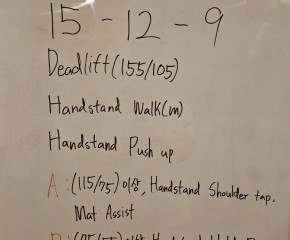 15 - 12 - 9
Deadlift (155/105)
Handstand Walk(m)
Handstand Push up
A : (115/75) 이상, Handstand Shoulder tap.
Mat Assist